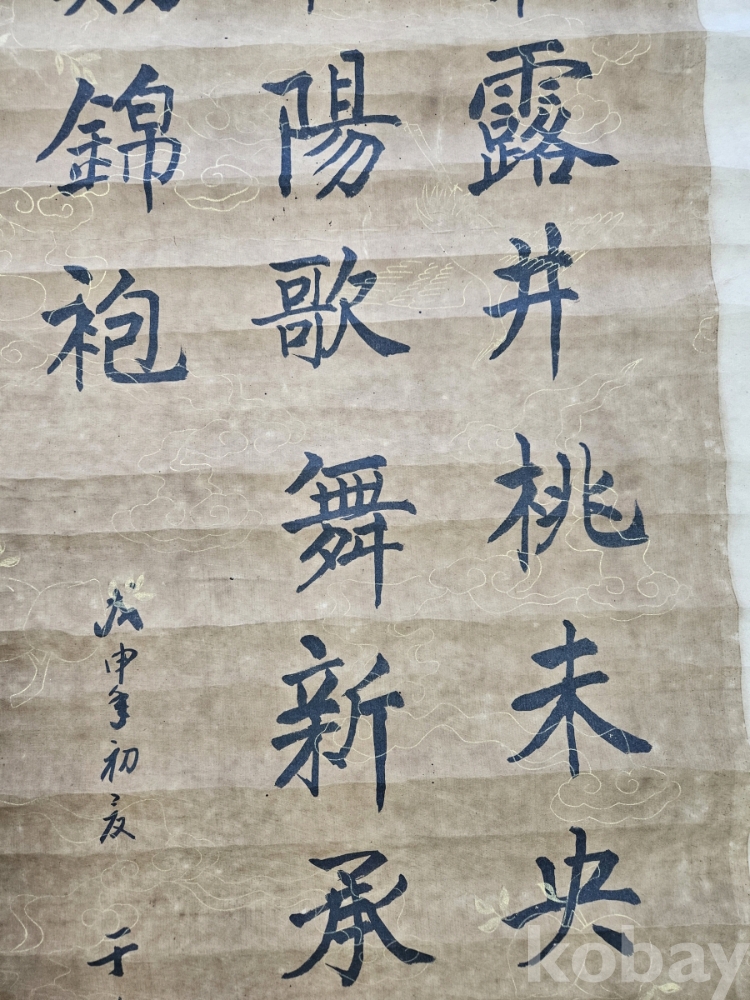 露井桃未央
陽歌舞新承
錦袍
戊申年初夏 于
kobay